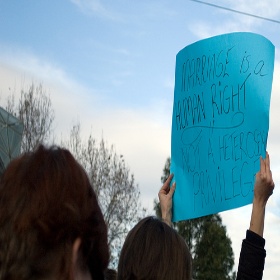 MARRIAGE is a
HUMAN RIGHT
NOT A HETEROSEXUAL
PRIVILEGE